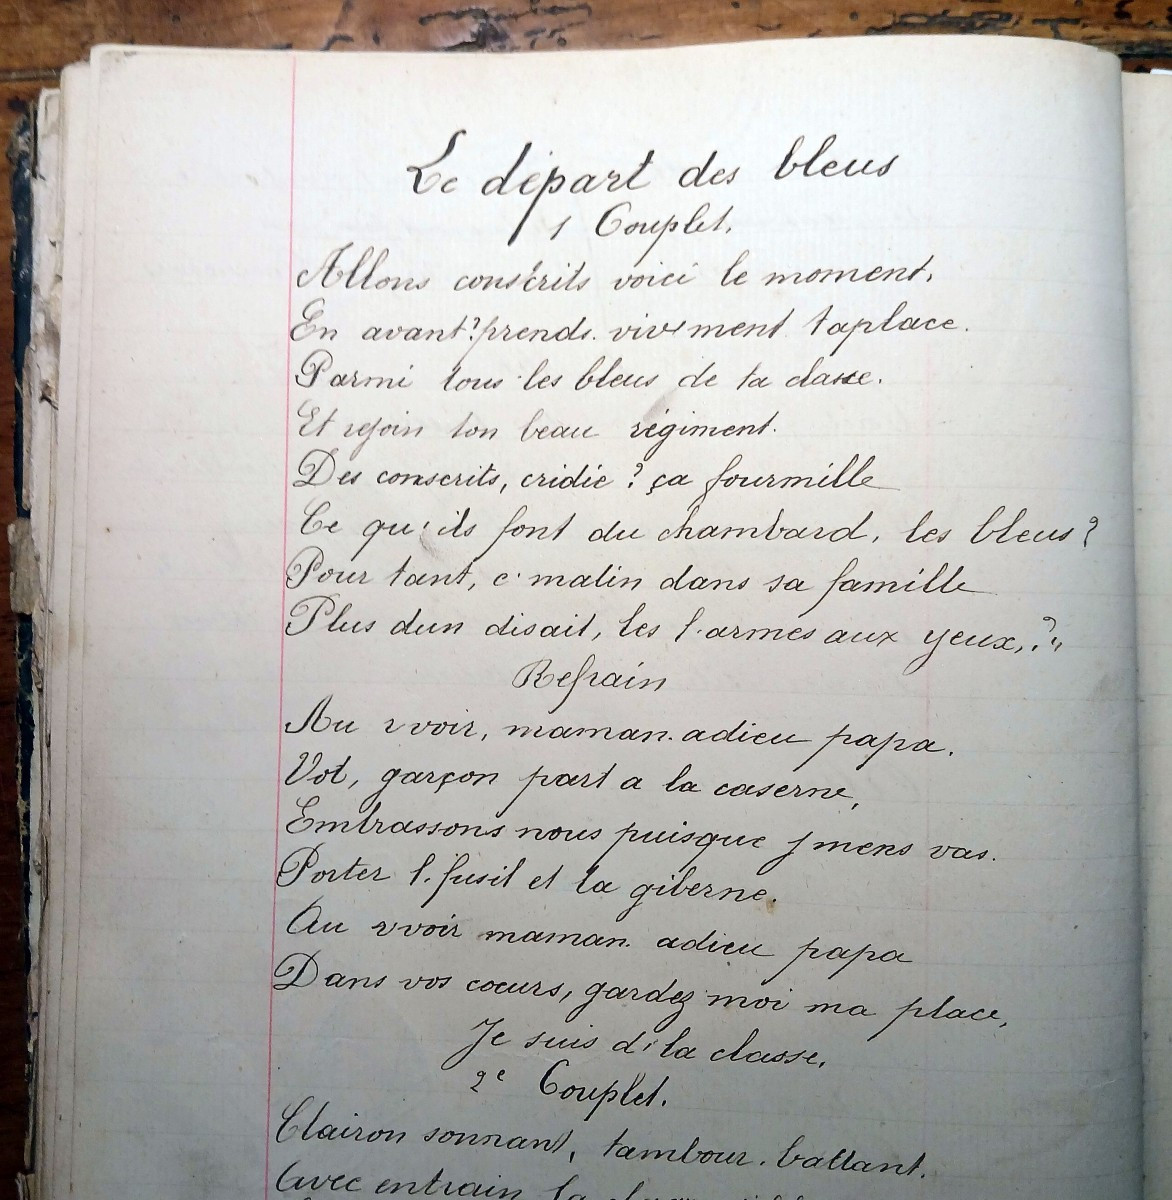 Le départ des bleus
1 Couplet.
Allons conscrits voici le moment.
En avant? prends vivement ta place.
Parmi tous les bleus de ta classe.
Et rejoin ton beau régiment.
Des conscrits, cridié ? ça fourmille
Ce qu'ils font du chambard, les bleus?
Pour tant, c' matin dans sa famille
Plus dun disait, les l'armes aux yeux,.?"
Refrain
Au rvoir, maman. adieu papa.
Vot, garçon part a la caserne,
Embrassons nous puisque j mens vas.
Porter l. fusil et la giberne.
Au rvoir maman. adieu papa
Dans vos cœurs, gardez moi ma place,
Je suis d'la classe.
2e Couplet.
Clairon sonnant, tambour. battant.
Avec entrain la